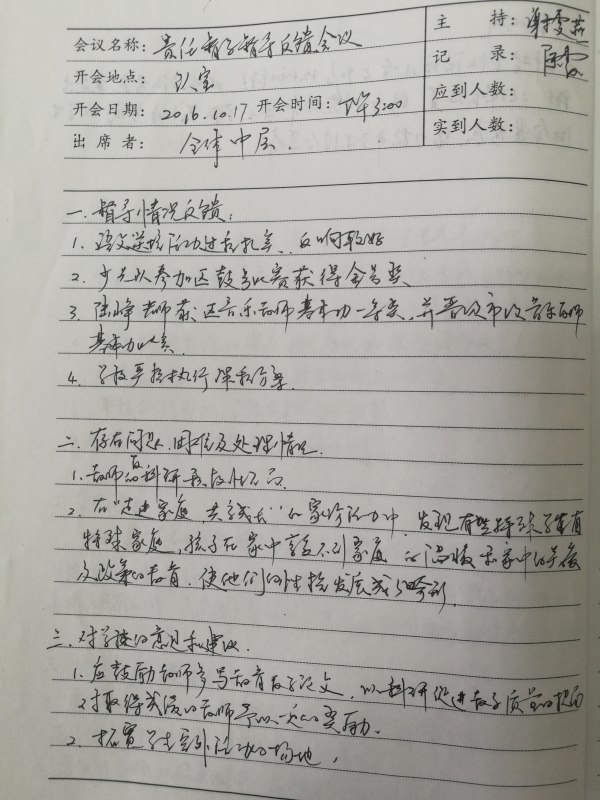 会议名称：责任督学督导反馈会议
主持：谢雯燕
开会地点：认室
记录：陈雪
开会日期：2016.10.17 开会时间：下午3:00
应到人数：
出席者：全体中层.
实到人数：
一. 督导情况反馈：
1. 活动过程扎实、反响较好
2. 少先队参加区鼓号比赛获得金号奖
3. 陆峥老师获区音乐教师基本功一等奖, 并晋级市级音乐教师
基本功比赛
4. 学校严格执行课程方案.
二. 存在问题、困难及处理情况.
1. 教师的科研
2. 在"走进家庭 共享成长"的家访活动中, 发现有些
特殊家庭, 孩子在家中享受不到家庭的温暖和家中的关爱
及教育, 使他们的性格发展
三. 对学校的意见和建议.
1. 应鼓励教师多写教育教学论文, 以科研促进教学质量的提高
对取得成绩的教师予以一定的奖励.
2. 拓宽学生室外活动的场地.